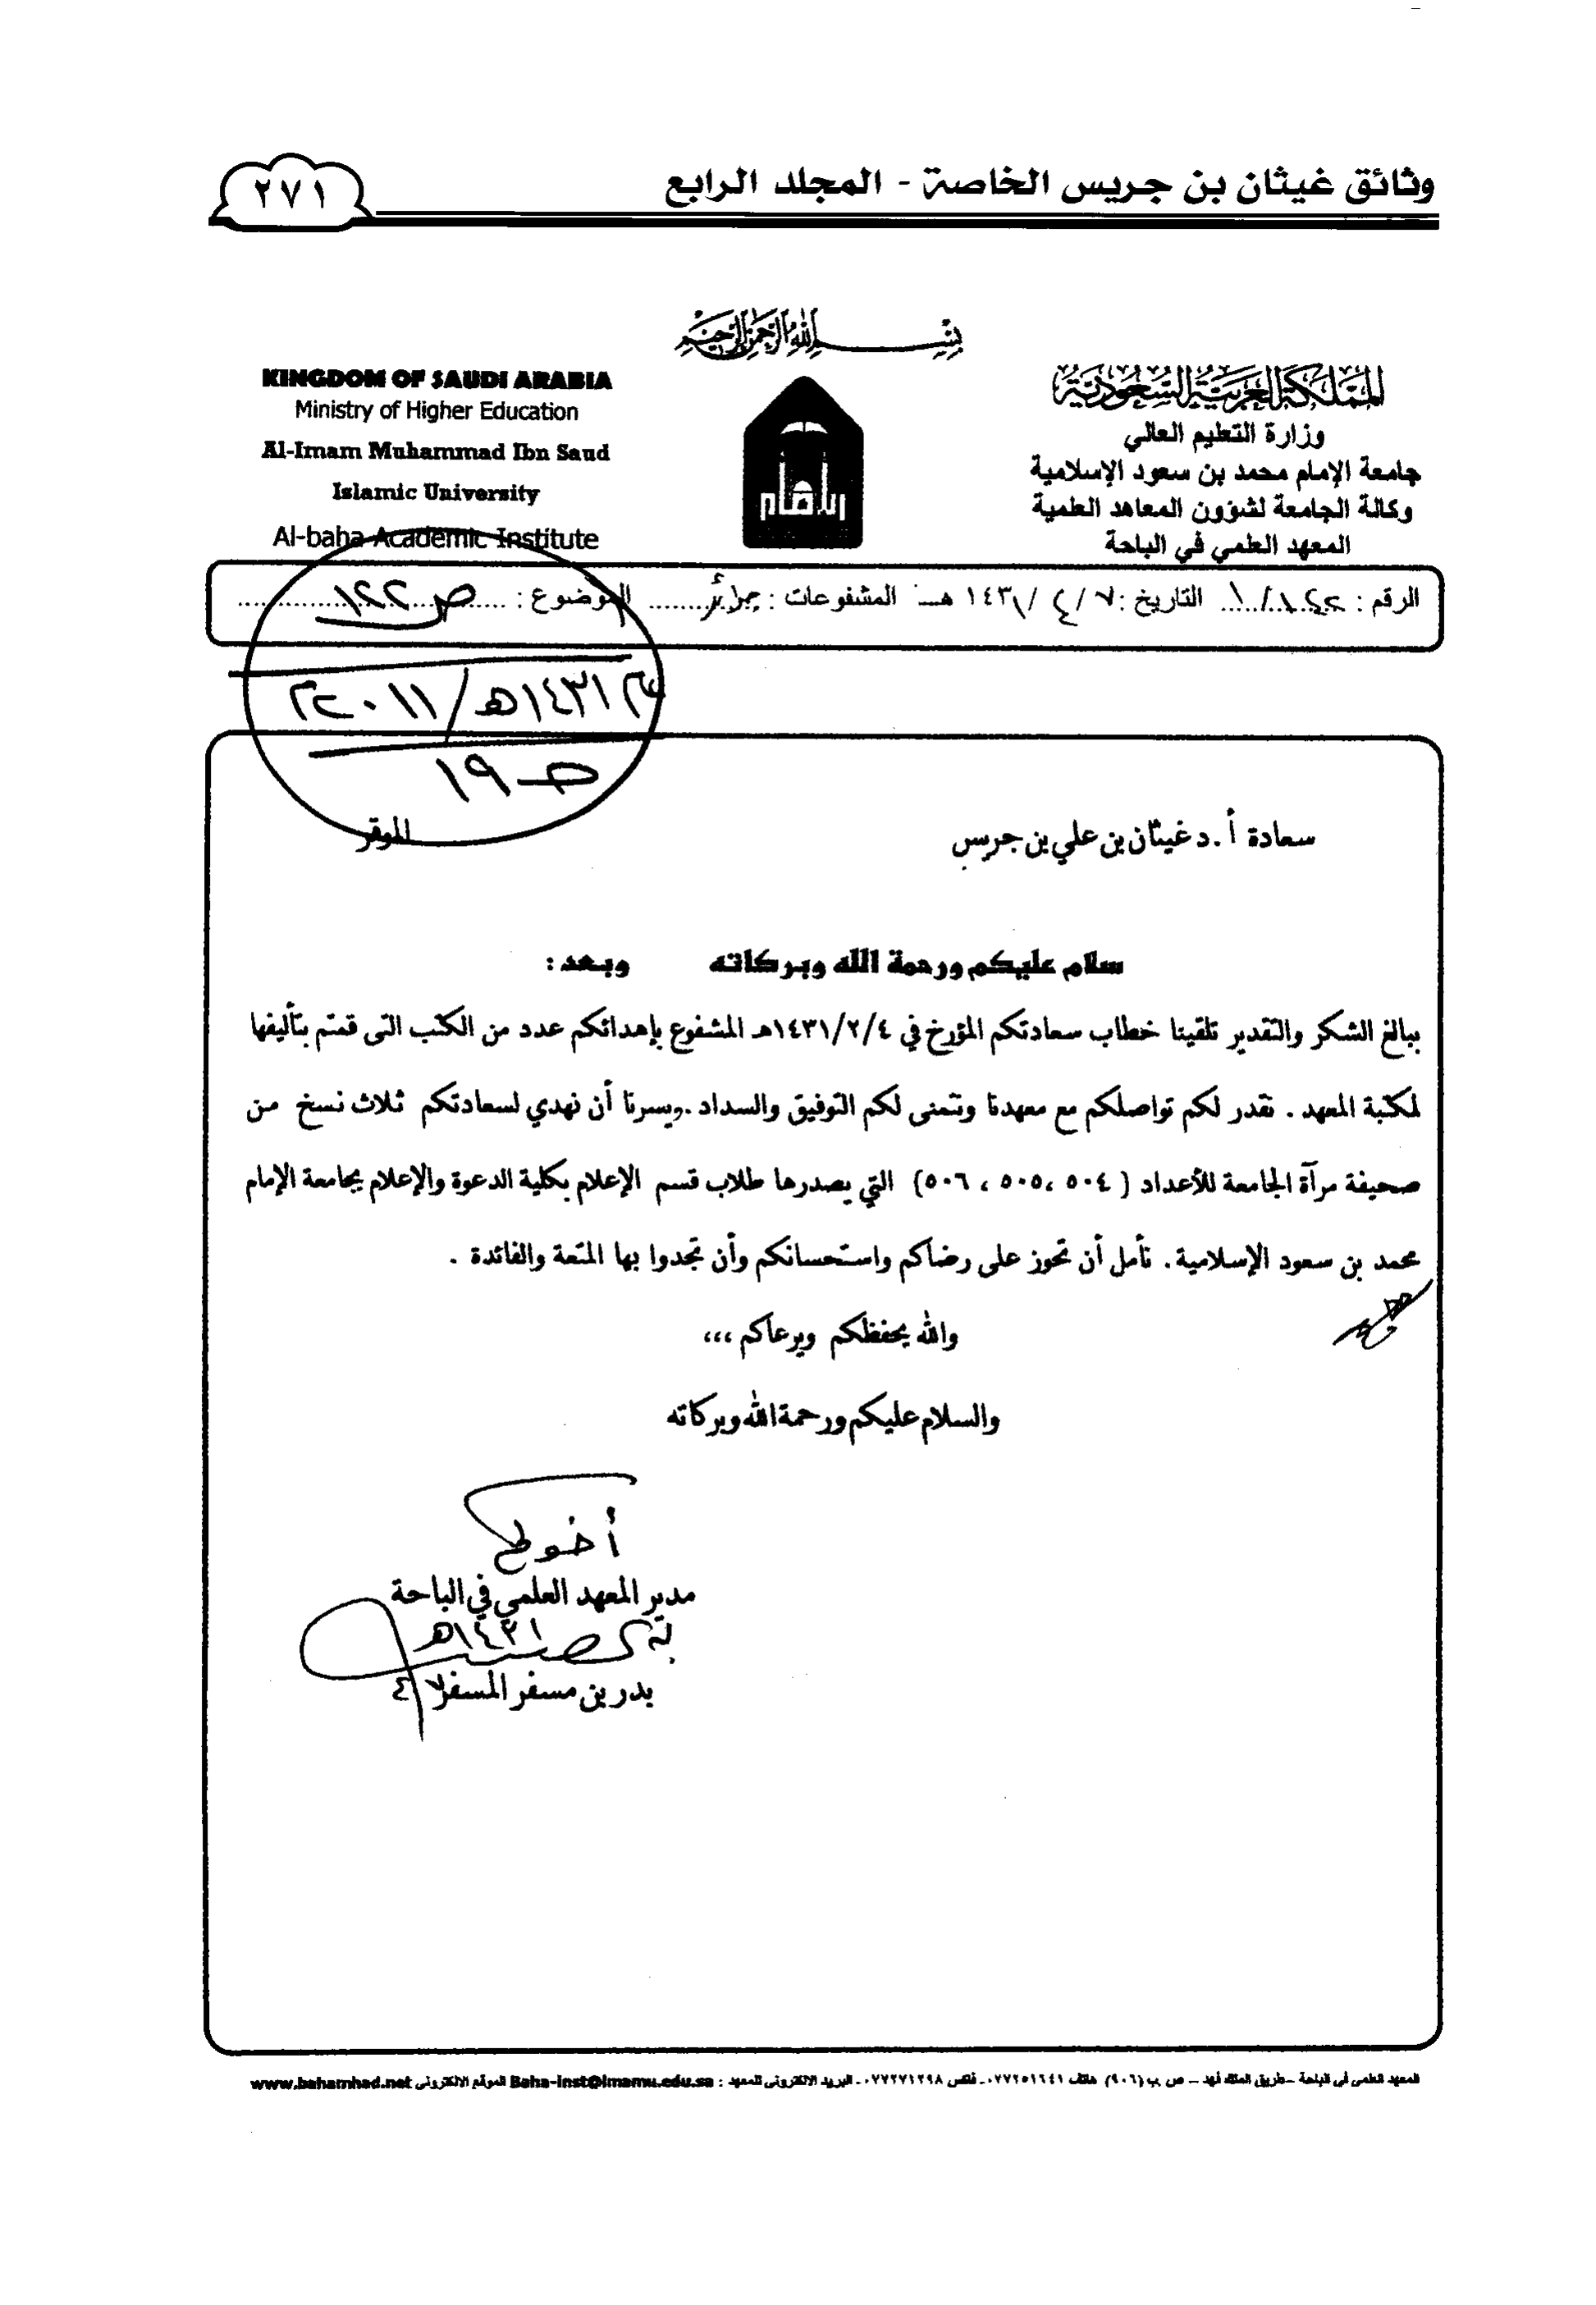 وثائق غيثان بن جريس الخاصة - المجلد الرابع
٢٧١
بسم الله الرحمن الرحيم
المملكة العربية السعودية
وزارة التعليم العالي
جامعة الإمام محمد بن سعود الإسلامية
وكالة الجامعة لشؤون المعاهد العلمية
المعهد العلمي في الباحة
KINGDOM OF SAUDI ARABIA
Ministry of Higher Education
Al-Imam Muhammad Ibn Saud
Islamic University
Al-baha Academic Institute
الإمام
الرقم : التاريخ : ٧ / ٤ / ١٤٣١ هـ المشفوعات : جرائد الموضوع : ص ١٢٢
١٤٣١هـ / ٢٠١١م
ص ١٩
سعادة أ.د غيثان بن علي بن جريس الموقر
سلام عليكم ورحمة الله وبركاته وبعد :
ببالغ الشكر والتقدير تلقينا خطاب سعادتكم المؤرخ في ١٤٣١/٢/٤هـ المشفوع بإهدائكم عدد من الكتب التى قمتم بتأليفها
لمكتبة المعهد . نقدر لكم تواصلكم مع معهدنا ونتمنى لكم التوفيق والسداد .ويسرنا أن نهدي لسعادتكم ثلاث نسخ من
صحيفة مرآة الجامعة للأعداد ( ٥٠٤ ،٥٠٥ ، ٥٠٦) التي يصدرها طلاب قسم الإعلام بكلية الدعوة والإعلام بجامعة الإمام
محمد بن سعود الإسلامية . نأمل أن تحوز على رضاكم واستحسانكم وأن تجدوا بها المتعة والفائدة .
والله يحفظكم ويرعاكم ،،،
والسلام عليكم ورحمة الله وبركاته
أخوكم
مدير المعهد العلمي في الباحة
١٤٣١هـ
بدر بن مسفر المسفر
المعهد العلمى فى الباحة – طريق الملك فهد – ص ب (٩٠٦) هاتف ٠٧٧٢٥١٦٤١ - فاكس ٠٧٧٢٧١٢٩٨ - البريد الالكترونى للمعهد : Baha-inst@imamu.edu.sa الموقع الالكترونى www.bahamhad.net